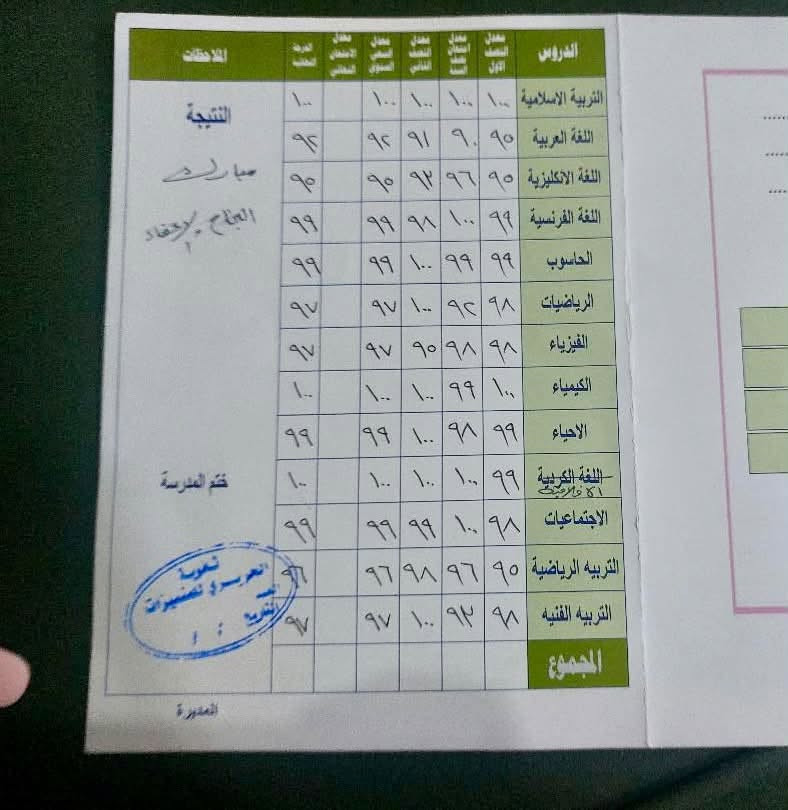 الدروس معدل النصف الاول معدل امتحان نصف السنة معدل النصف الثاني معدل السعي السنوي معدل الامتحان النهائي الدرجة النهائية الملاحظات
التربية الاسلامية ١٠٠ ١٠٠ ١٠٠ ١٠٠ ١٠٠
اللغة العربية ٩٥ ٩٠ ٩١ ٩٢ ٩٢
اللغة الانكليزية ٩٥ ٩٦ ٩٣ ٩٥ ٩٥
اللغة الفرنسية ٩٩ ١٠٠ ٩٨ ٩٩ ٩٩
الحاسوب ٩٩ ٩٩ ١٠٠ ٩٩ ٩٩
الرياضيات ٩٨ ٩٢ ١٠٠ ٩٧ ٩٧
الفيزياء ٩٨ ٩٨ ٩٥ ٩٧ ٩٧
الكيمياء ١٠٠ ٩٩ ١٠٠ ١٠٠ ١٠٠
الاحياء ٩٩ ٩٨ ١٠٠ ٩٩ ٩٩
اللغة الكردية ٩٩ ١٠٠ ١٠٠ ١٠٠ ١٠٠
الاخلاقية
الاجتماعيات ٩٨ ١٠٠ ٩٩ ٩٩ ٩٩
التربيه الرياضية ٩٥ ٩٦ ٩٨ ٩٦ ٩٦
التربيه الفنيه ٩٨ ٩٣ ١٠٠ ٩٧ ٩٧
المجموع
النتيجة
مبارك
النجاح بالإعفاء
ختم المدرسة
ثانوية
الحريري للمتميزات
العدد
التاريخ / /
المديرة